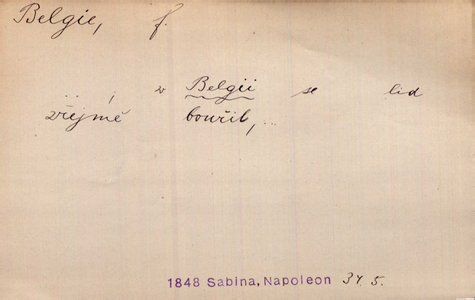 Belgie, f.
.. i v Belgii se lid
zřejmě bouřil, ..
1848 Sabina, Napoleon 34. 5.